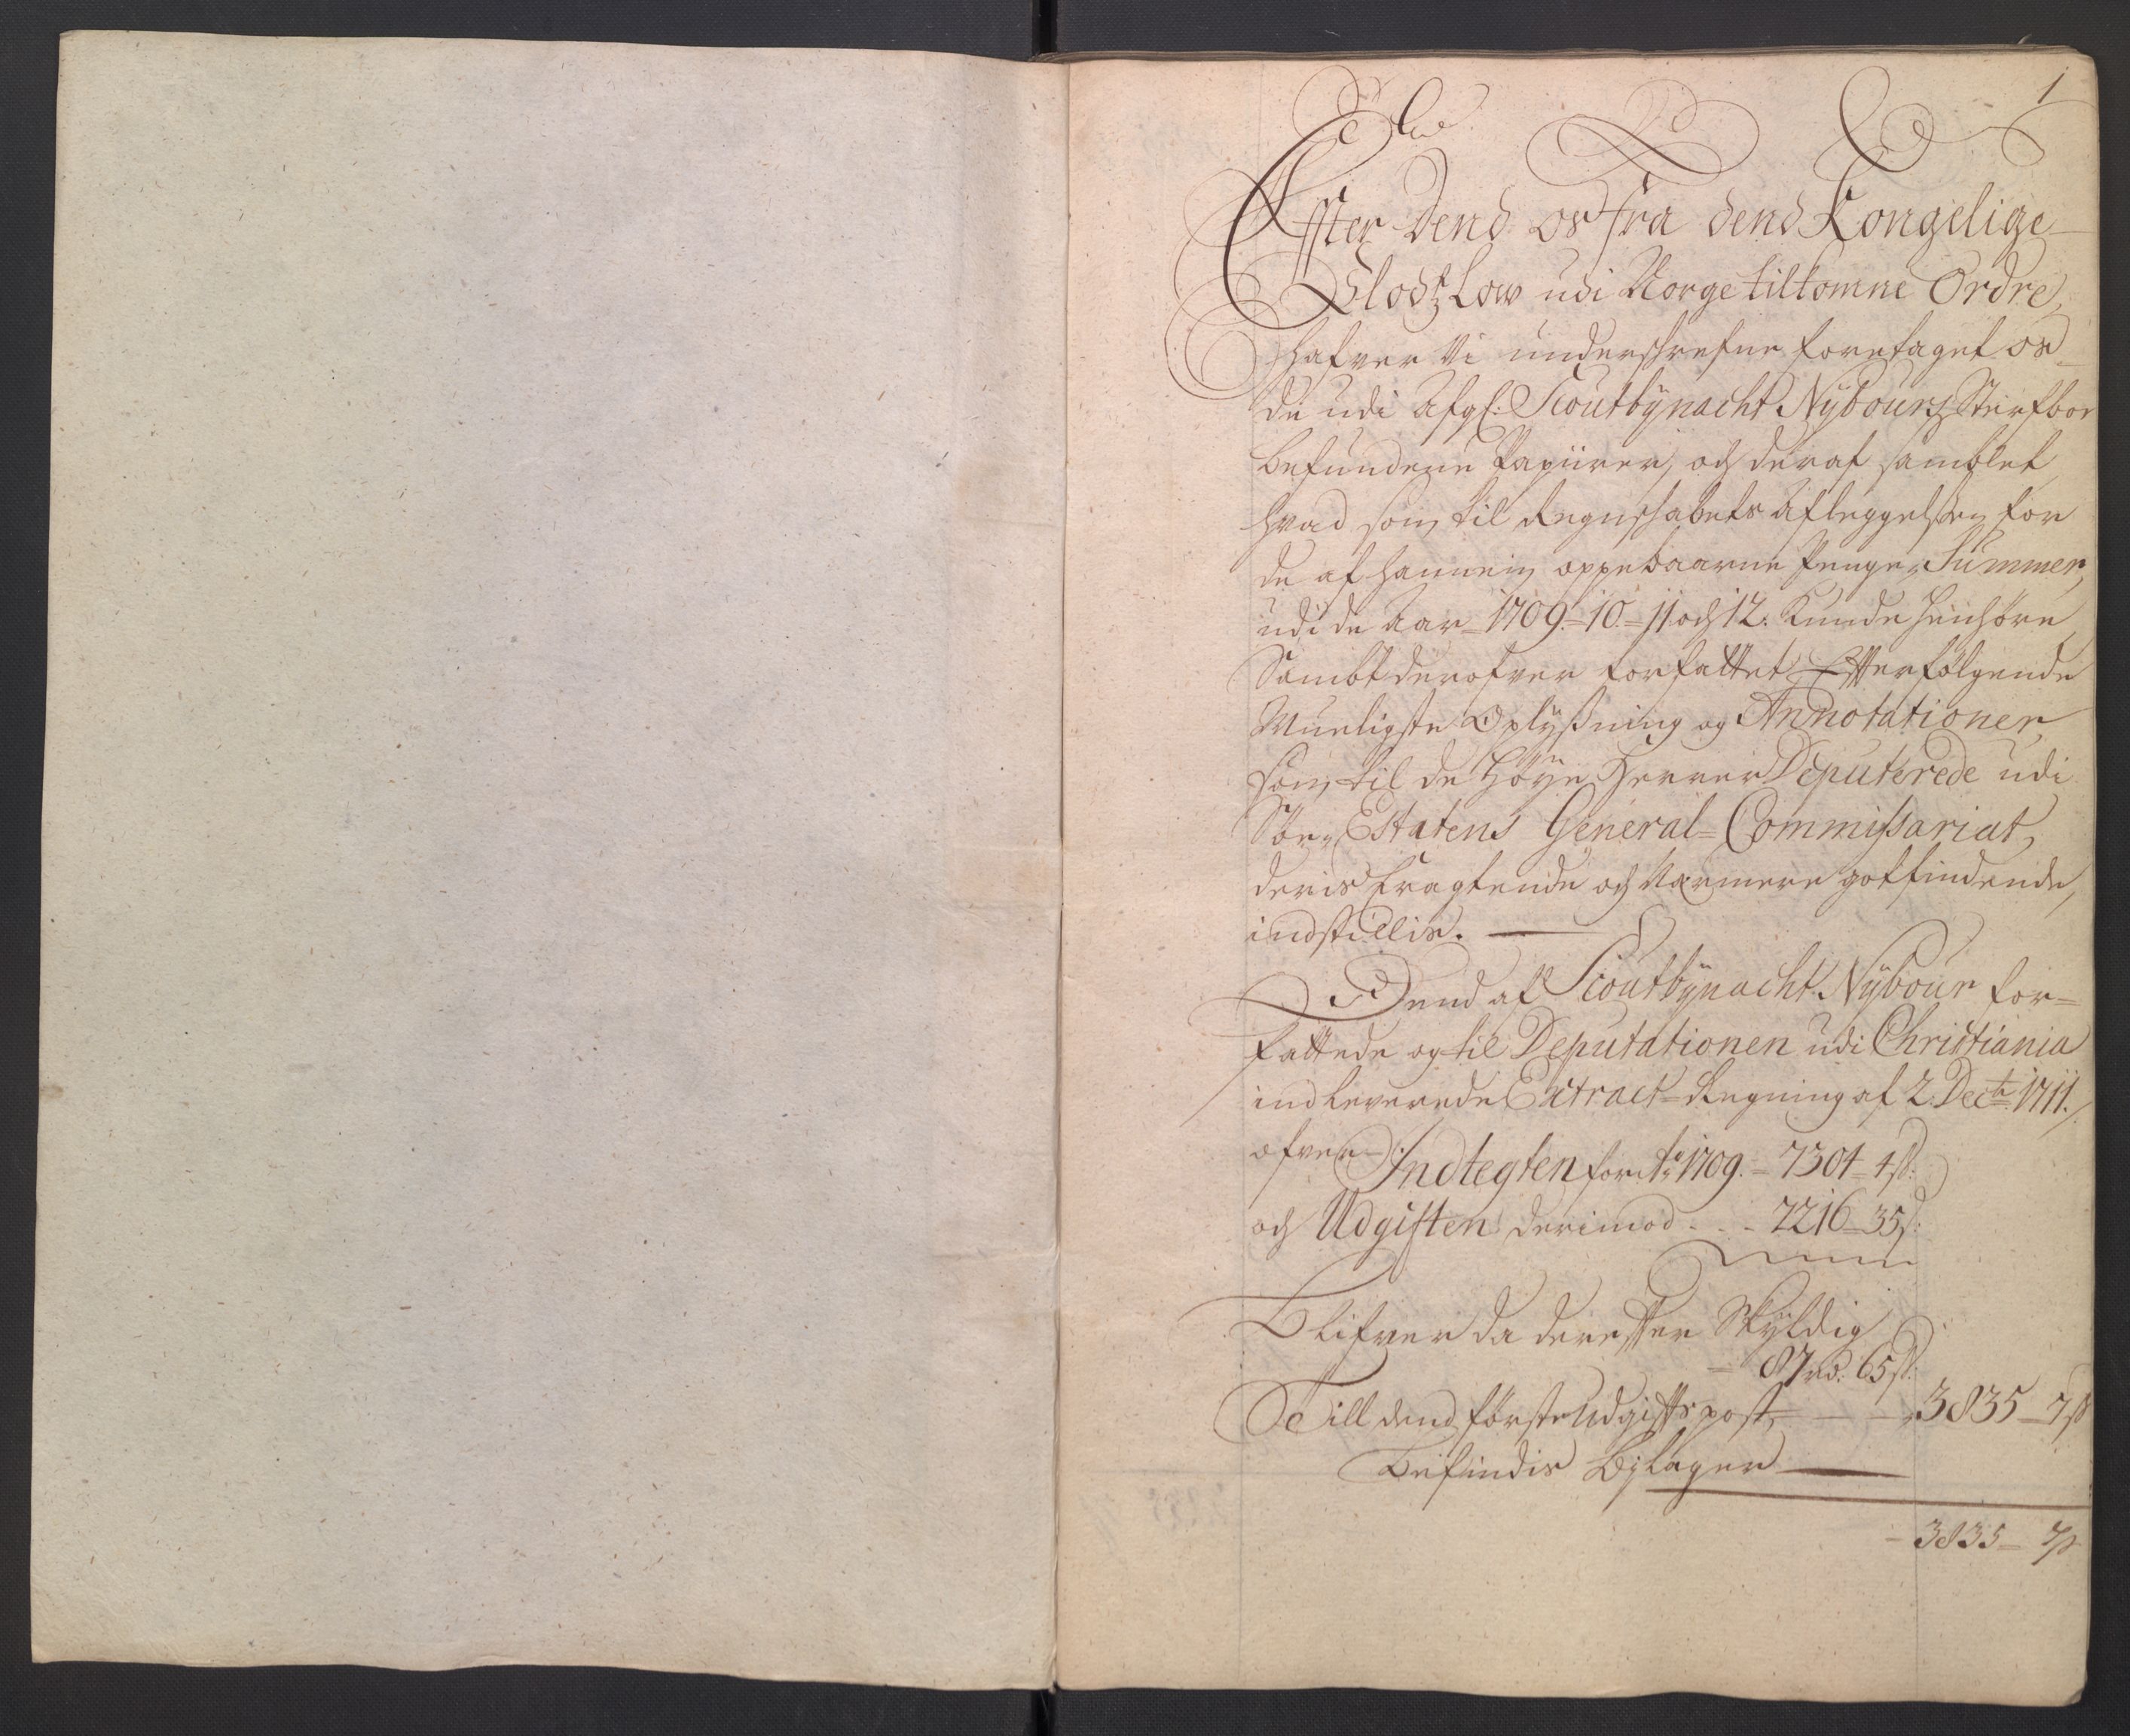 1
Effter Dend os fra dend Kongelige
Slodz Low udi Norge tilkomne Ordre,
hafver Vi underschrefne foretaget os
de udi Afgl: Scoutbÿnacht Nÿbours Sterfboe
befundene Papiirer, och deraf samblet
hvad som til Regnschabets Afleggelsen for
de af hannem oppebaarne Penge Summer,
udi de Aar 1709-10-11 och 12. Kunde henhöre
Sambt derofver forfattet Effterfølgende
Mueligste Oplÿsning og Annotationer
som til de Höye Herrer Deputerede udi
Söe Estatens General-Commissariat,
deris Eragtende och Nærmere gotfindende,
indstillis.
Dend af Scoutbÿnacht Nÿbour for=
fattede og til Deputationen udi Christiania
indleverede Extract-Regning af 2 Decbr 1711.
ofver Indtegten for Ao 1709. - 7304 - 4 s:
och Udgiften derimod - - - 7216 - 35 s:
Blifver da dereffter Skÿldig
- 87 rd. 65 s:
Till dend förste Udgiffts post, - - 3835 - 7 s
Befindis Bÿlager
- 3835 - 7 s